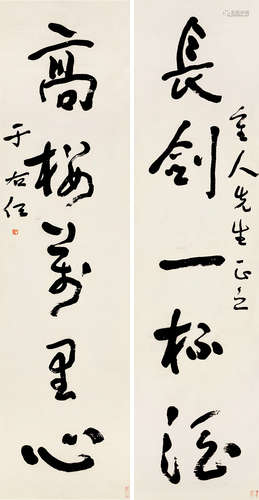 長劍一杯酒
人先生正之
高樓萬里心
于右任